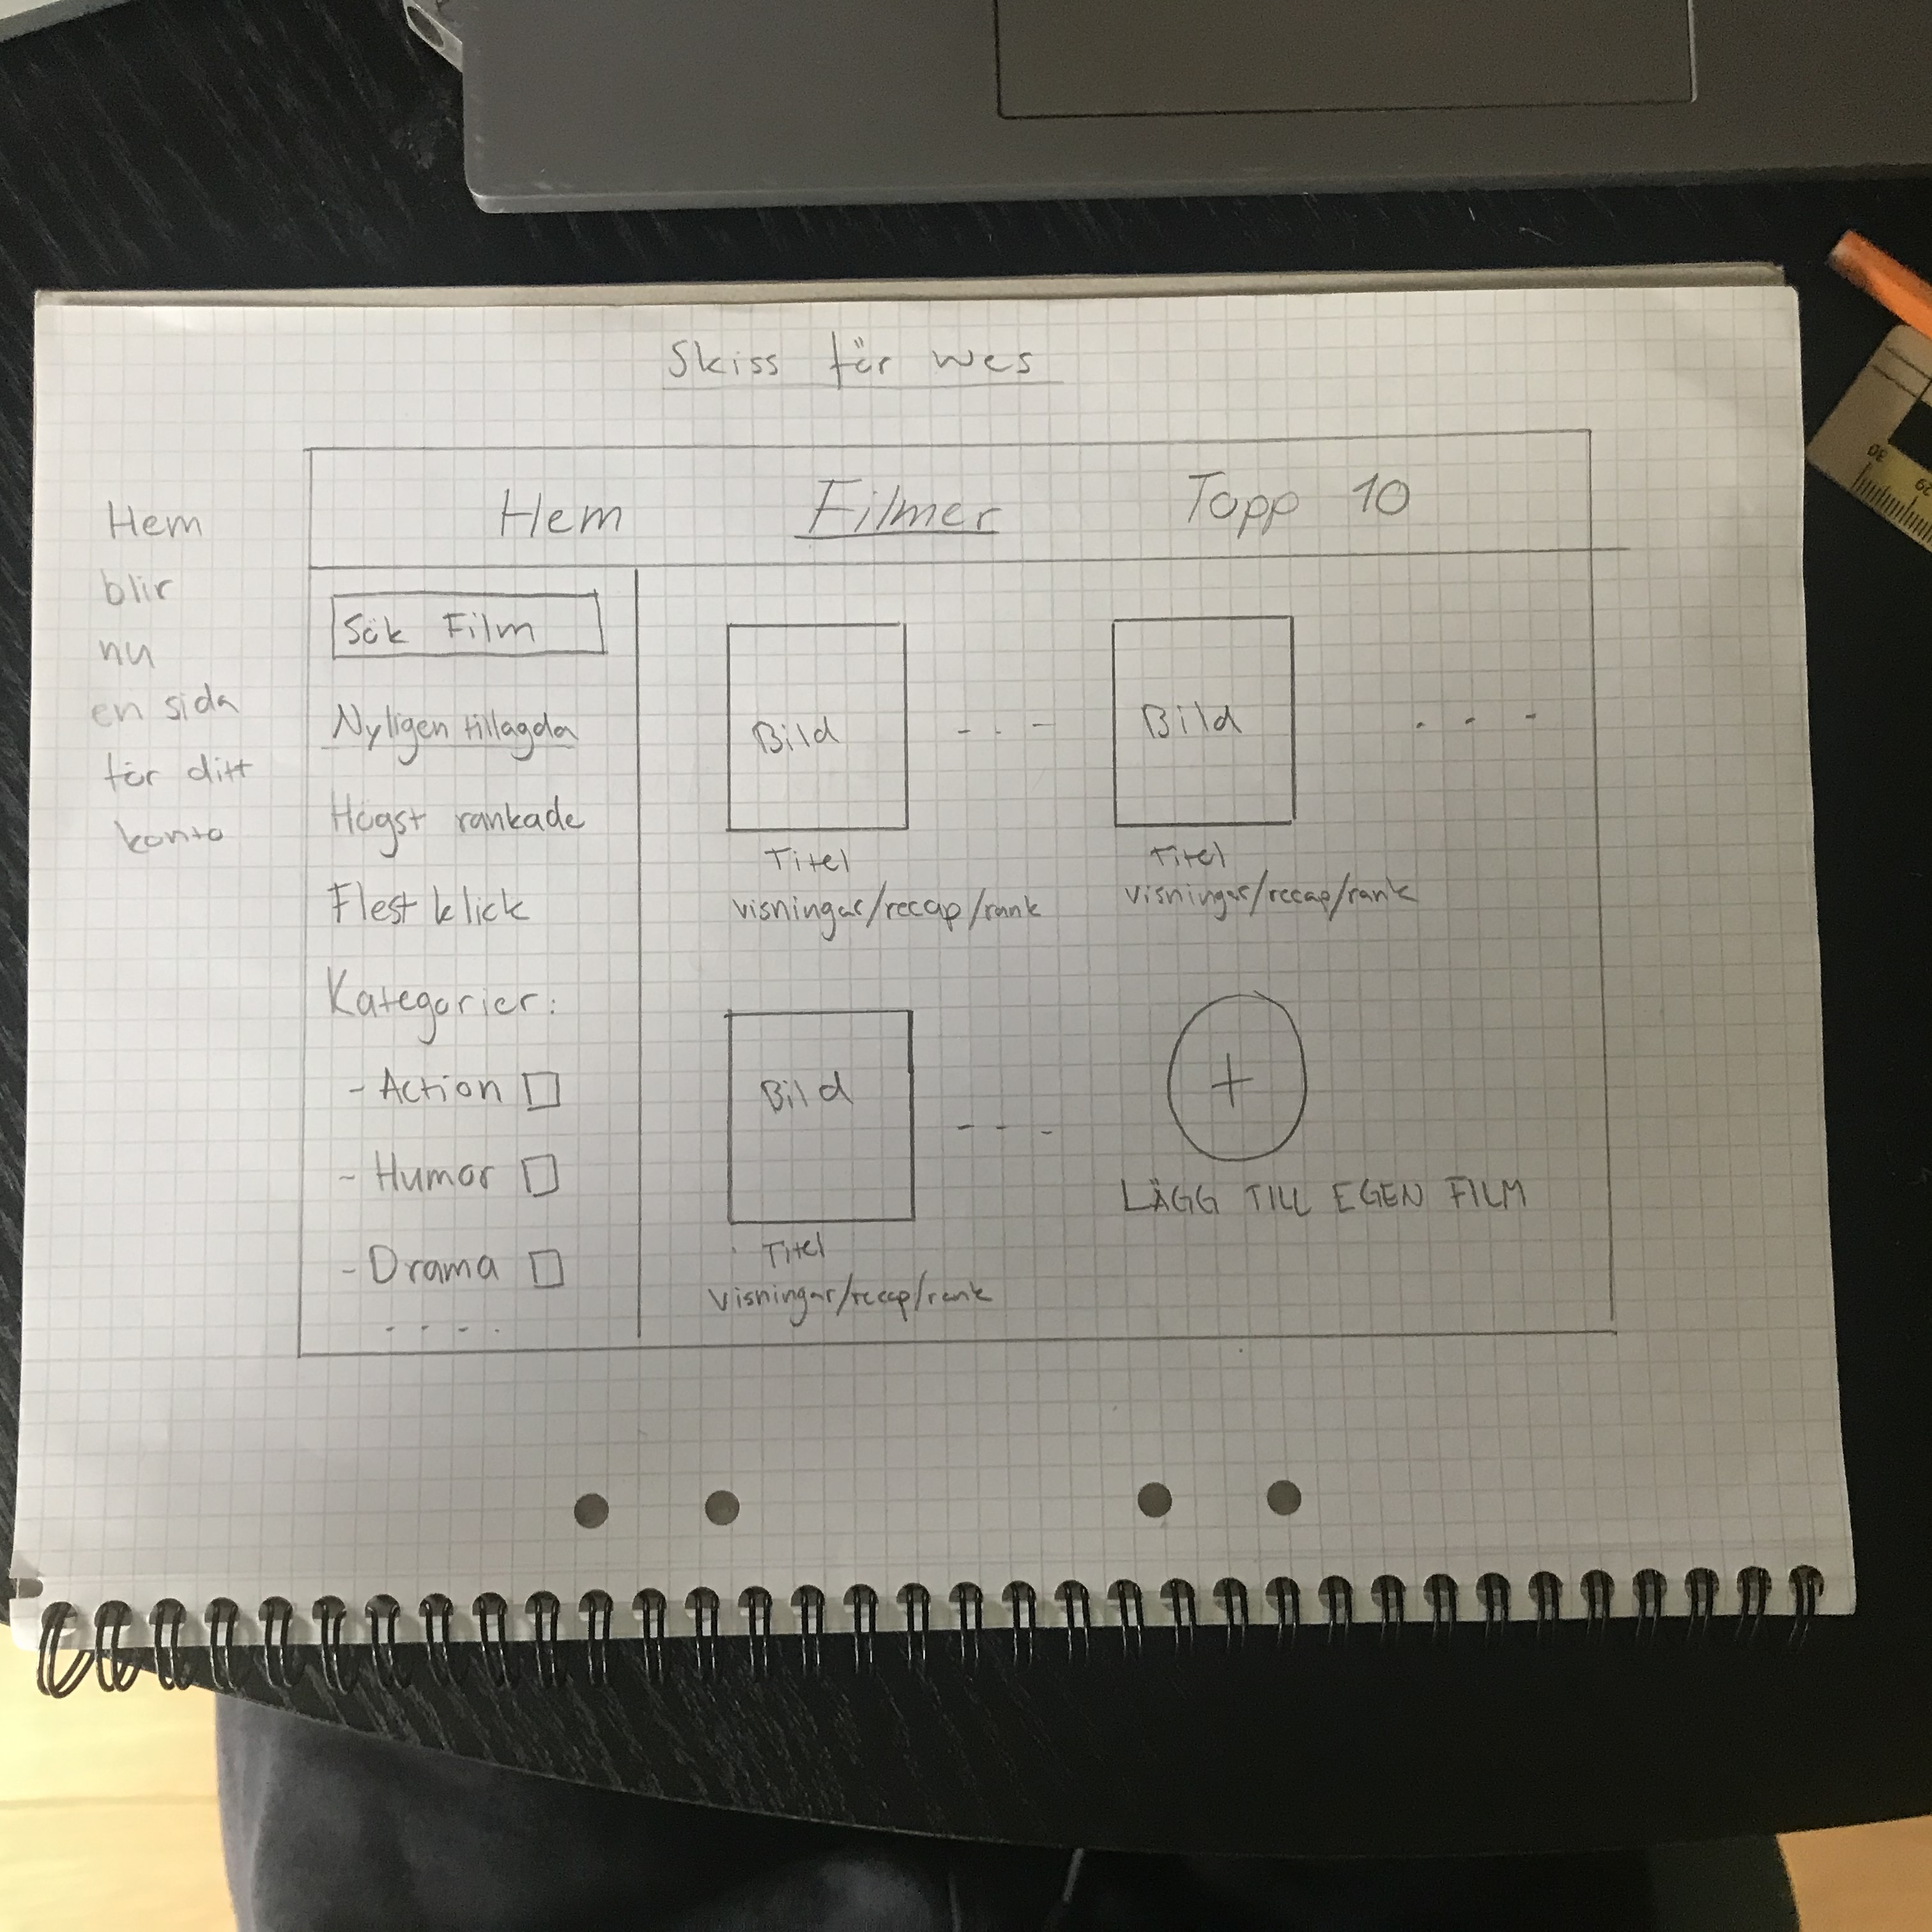 Skiss för wes
Hem
blir
nu
en sida
för ditt
konto
Hem Filmer Topp 10
Sök Film
Nyligen tillagda
Högst rankade
Flest klick
Kategorier:
- Action
- Humor
- Drama
Bild
Titel
visningar/recap/rank
Bild
Titel
visningar/recap/rank
Bild
Titel
visningar/recap/rank
+
LÄGG TILL EGEN FILM
30
29